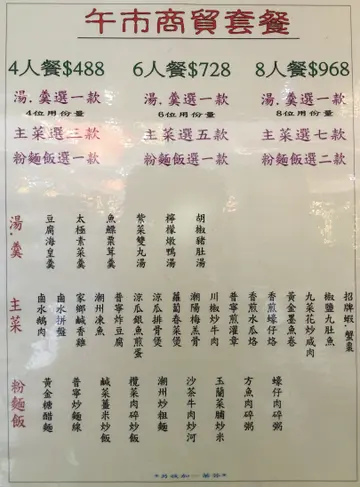 午市商貿套餐
4人餐$488
6人餐$728
8人餐$968
湯．羹選一款
4位用份量
湯．羹選一款
6位用份量
湯．羹選一款
8位用份量
主菜選三款
主菜選五款
主菜選七款
粉麵飯選一款
粉麵飯選一款
粉麵飯選二款
湯．羹
豆腐海皇羹
太極素菜羹
魚鰾粟茸羹
紫菜雙丸湯
檸檬燉鴨湯
胡椒豬肚湯
主菜
鹵水鵝肉
鹵水拼盤
家鄉鹹香雞
潮州凍魚
普寧炸豆腐
涼瓜銀魚煎蛋
涼瓜排骨煲
蘿蔔春菜煲
潮陽梅羔骨
川椒炒牛肉
普寧煎灌章
香煎水瓜烙
香煎蠔仔烙
黃金墨魚卷
九菜花炒咸肉
椒鹽九肚魚
招牌蝦．蟹棗
粉麵飯
黃金糖醋麵
普寧炒麵線
鹹菜薑米炒飯
欖菜肉碎炒飯
潮州炒粗麵
沙茶牛肉炒河
玉蘭菜脯炒米
方魚肉碎粥
蠔仔肉碎粥